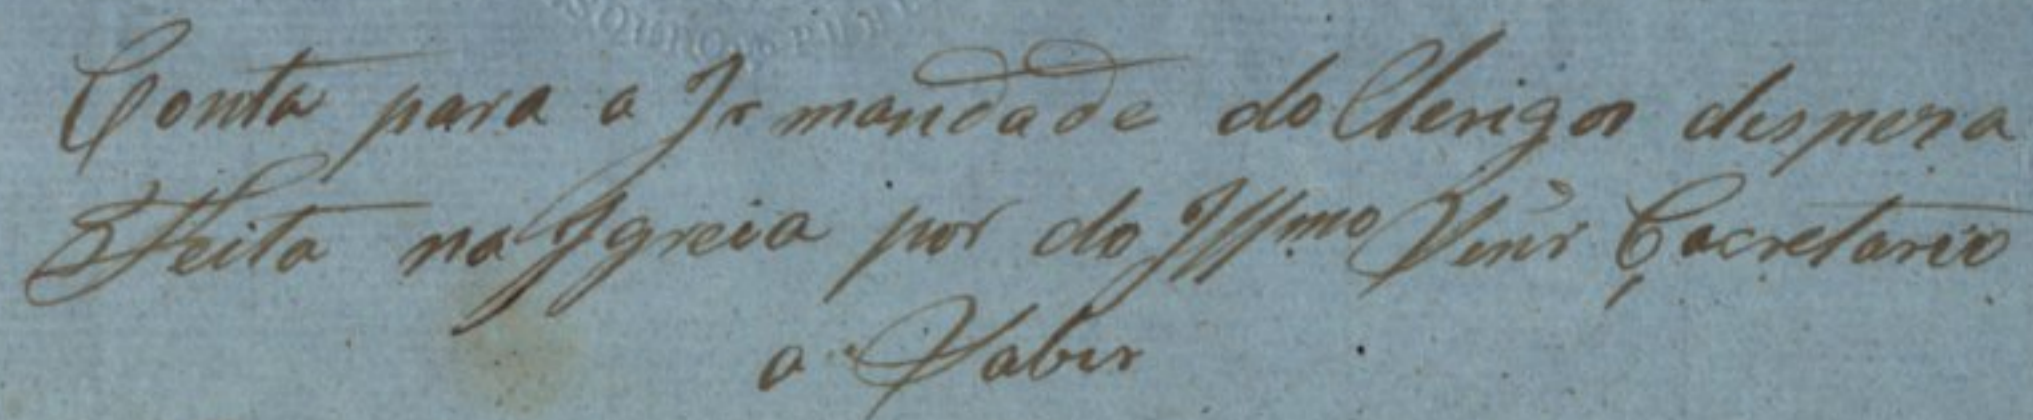 Conta para a Irmandade do Clerigos despeza
Feita na Igreia por do Illmo Senr Çacretario
a Saber